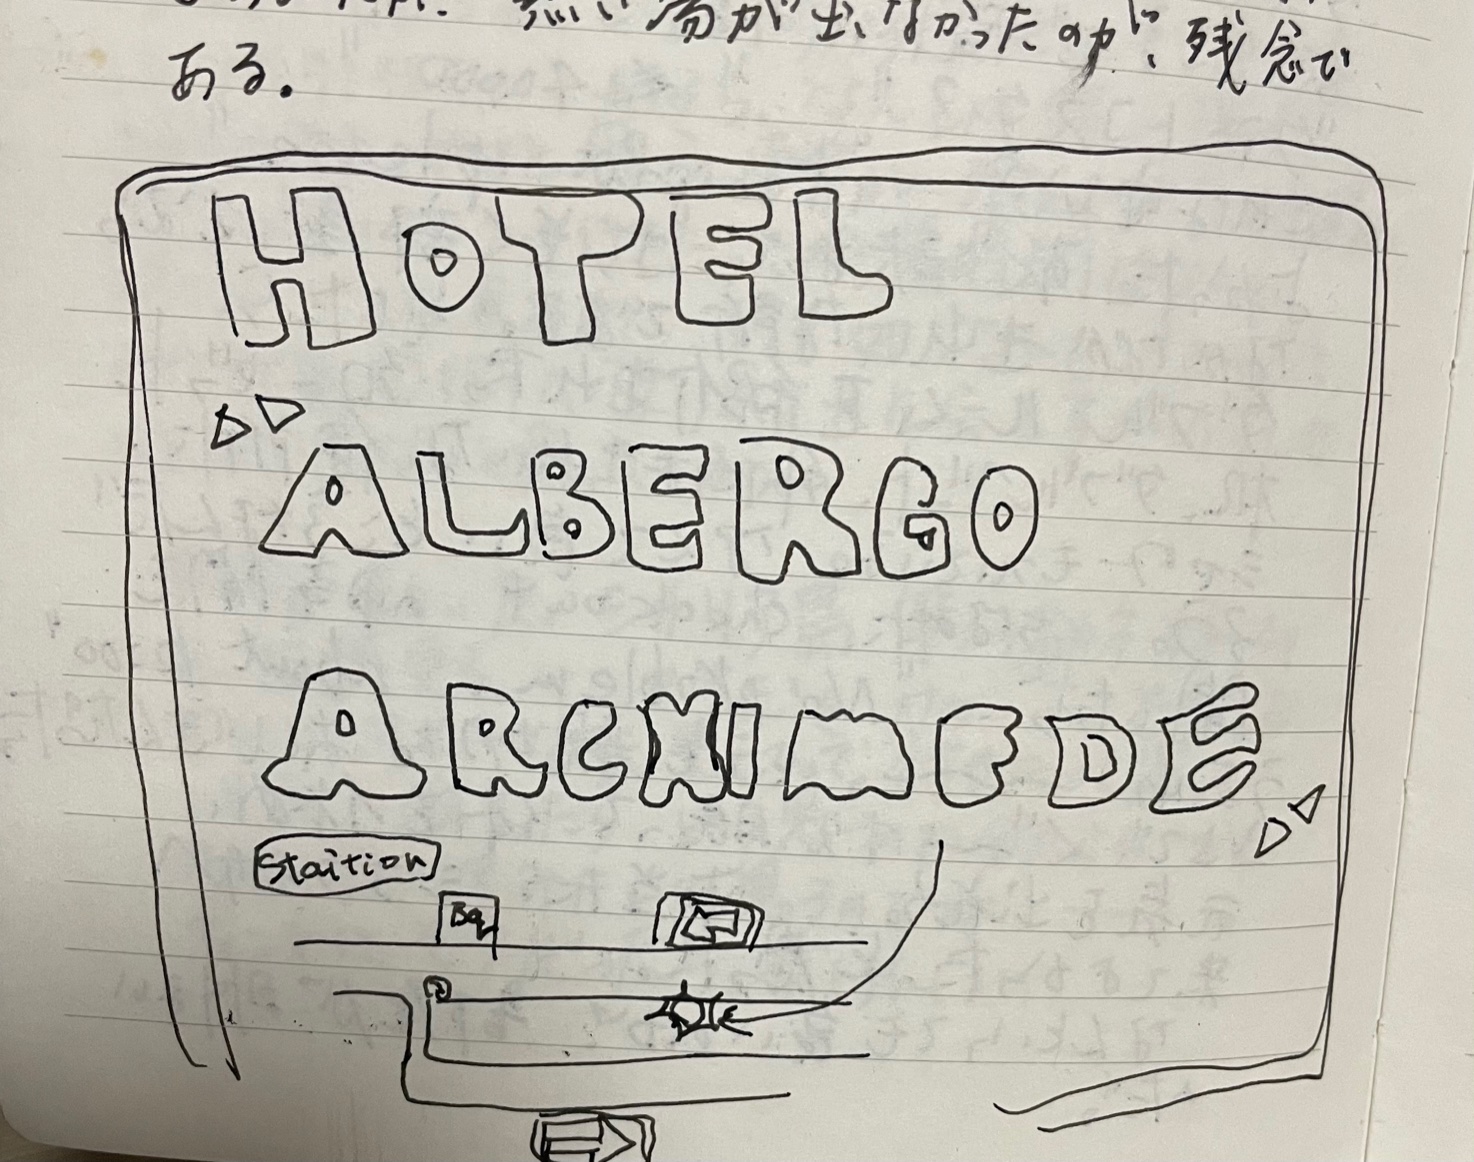 熱い湯が出なかったのが、残念で
ある.
HOTEL
ALBERGO
ARCHIMEDE
Staition